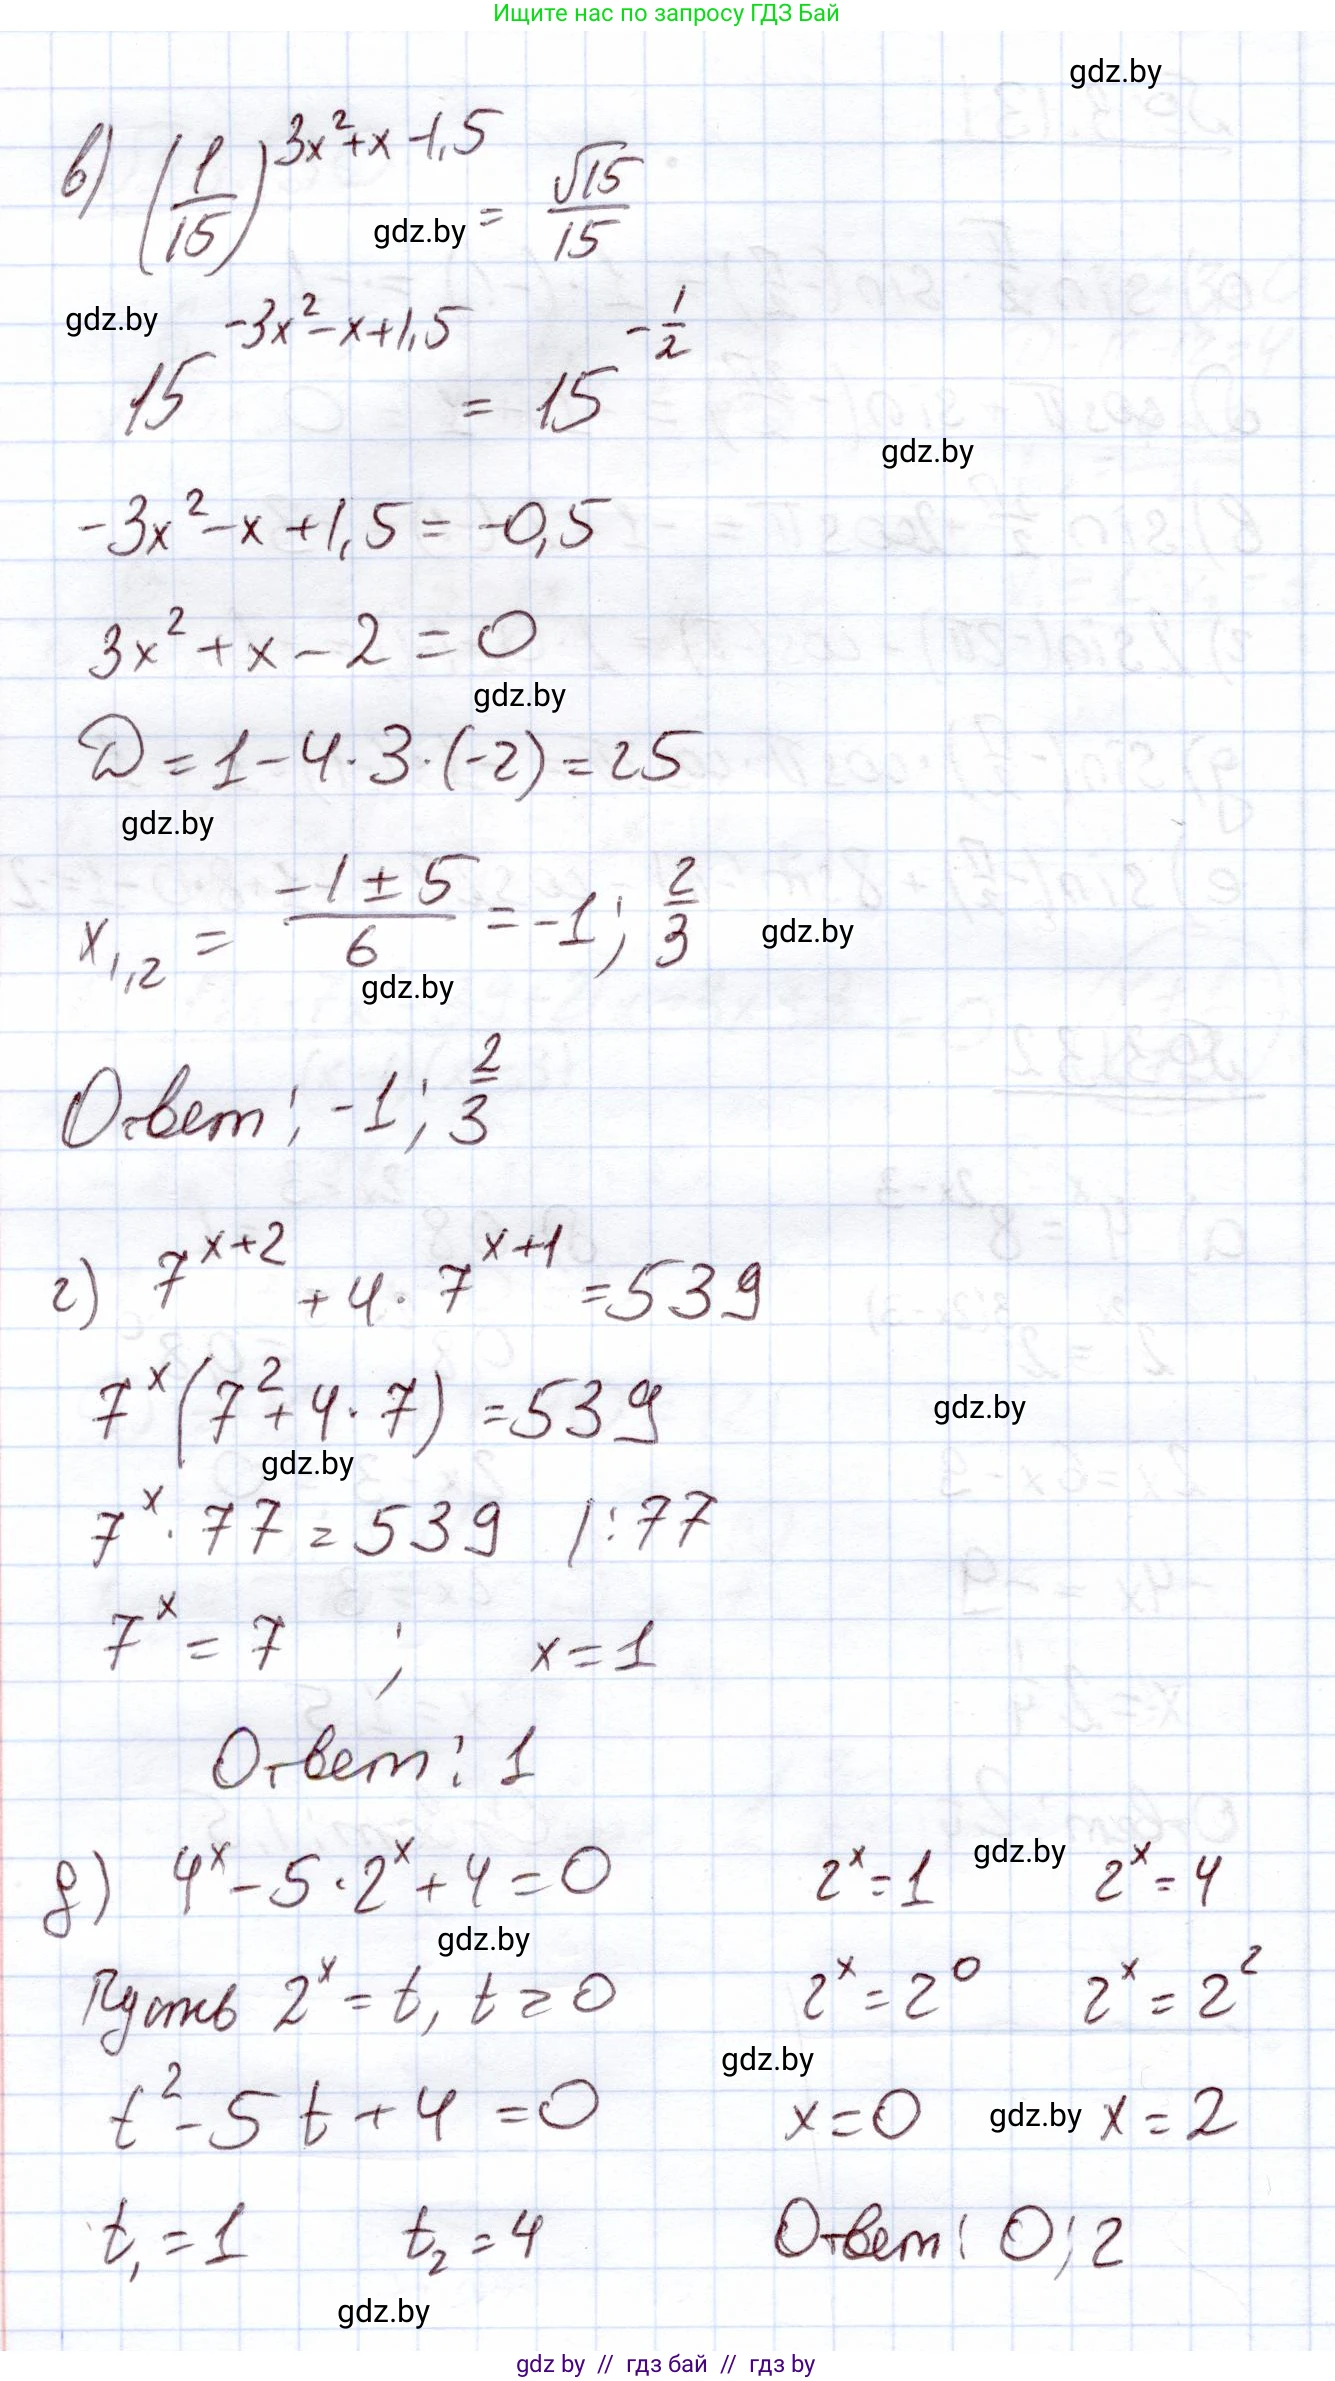 Ищите нас по запросу ГДЗ Бай
gdz.by
в) (1/15)^(3x²+x-1,5) = √15/15
gdz.by
gdz.by
15^(-3x²-x+1,5) = 15^(-1/2)
gdz.by
-3x²-x+1,5=-0,5
3x²+x-2=0
gdz.by
D=1-4·3·(-2)=25
gdz.by
x₁,₂ = (-1±5)/6 = -1; 2/3
gdz.by
gdz.by
Ответ: -1; 2/3
г) 7^(x+2) + 4·7^(x+1) = 539
7^x(7²+4·7) = 539
gdz.by
gdz.by
7^x·77=539 |:77
7^x=7 ; x=1
Ответ: 1
д) 4^x-5·2^x+4=0
gdz.by
Пусть 2^x=t, t>0
t²-5t+4=0
t₁=1 t₂=4
gdz.by
2^x=1 gdz.by 2^x=4
2^x=2^0 2^x=2^2
gdz.by
x=0 gdz.by x=2
Ответ: 0; 2
gdz by // гдз бай // гдз by